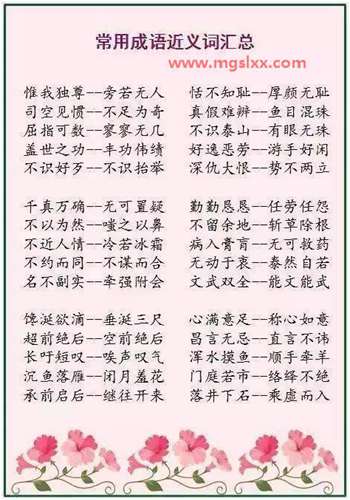 常用成语近义词汇总
www.mgslxx.com
惟我独尊--旁若无人 恬不知耻--厚颜无耻
司空见惯--不足为奇 真假难辨--鱼目混珠
屈指可数--寥寥无几 不识泰山--有眼无珠
盖世之功--丰功伟绩 好逸恶劳--游手好闲
不识好歹--不识抬举 深仇大恨--势不两立
千真万确--无可置疑 勤勤恳恳--任劳任怨
不以为然--嗤之以鼻 不留余地--斩草除根
不近人情--冷若冰霜 病入膏肓--无可救药
不约而同--不谋而合 无动于衷--泰然自若
名不副实--牵强附会 文武双全--能文能武
馋涎欲滴--垂涎三尺 心满意足--称心如意
超前绝后--空前绝后 昌言无忌--直言不讳
长吁短叹--唉声叹气 浑水摸鱼--顺手牵羊
沉鱼落雁--闭月羞花 门庭若市--络绎不绝
承前启后--继往开来 落井下石--乘虚而入